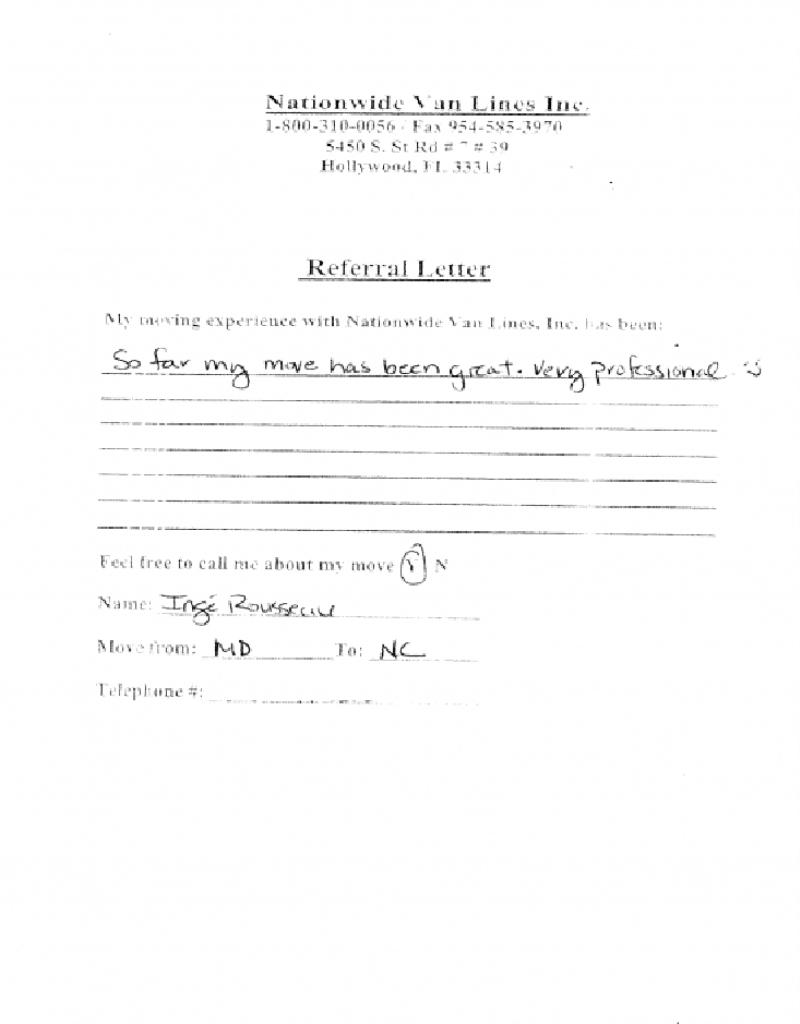 Nationwide Van Lines Inc.
1-800-310-0056 · Fax 954-585-3970
5450 S. St Rd # 7 # 39
Hollywood, FL 33314
Referral Letter
My moving experience with Nationwide Van Lines, Inc. has been:
So far my move has been great. Very professional :)
Feel free to call me about my move Y N
Name: Ingé Rousseau
Move from: MD To: NC
Telephone #: